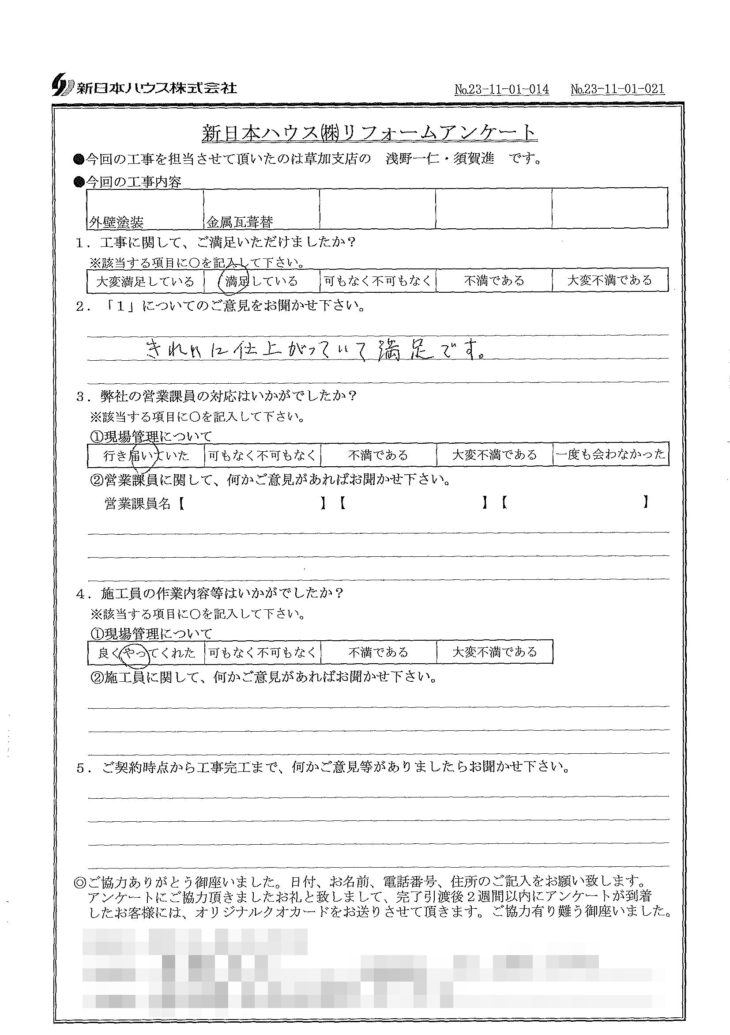 新日本ハウス株式会社 No.23-11-01-014 No.23-11-01-021
新日本ハウス㈱リフォームアンケート
●今回の工事を担当させて頂いたのは草加支店の 浅野一仁・須賀進 です。
●今回の工事内容
外壁塗装 金属瓦葺替
1．工事に関して、ご満足いただけましたか？
※該当する項目に○を記入して下さい。
大変満足している 満足している 可もなく不可もなく 不満である 大変不満である
2．「1」についてのご意見をお聞かせ下さい。
きれいに仕上がっていて満足です。
3．弊社の営業課員の対応はいかがでしたか？
※該当する項目に○を記入して下さい。
①現場管理について
行き届いていた 可もなく不可もなく 不満である 大変不満である 一度も会わなかった
②営業課員に関して、何かご意見があればお聞かせ下さい。
営業課員名【 】【 】【 】
4．施工員の作業内容等はいかがでしたか？
※該当する項目に○を記入して下さい。
①現場管理について
良くやってくれた 可もなく不可もなく 不満である 大変不満である
②施工員に関して、何かご意見があればお聞かせ下さい。
5．ご契約時点から工事完工まで、何かご意見等がありましたらお聞かせ下さい。
◎ご協力ありがとう御座いました。日付、お名前、電話番号、住所のご記入をお願い致します。
アンケートにご協力頂きましたお礼と致しまして、完了引渡後2週間以内にアンケートが到着
したお客様には、オリジナルクオカードをお送りさせて頂きます。ご協力有り難う御座いました。